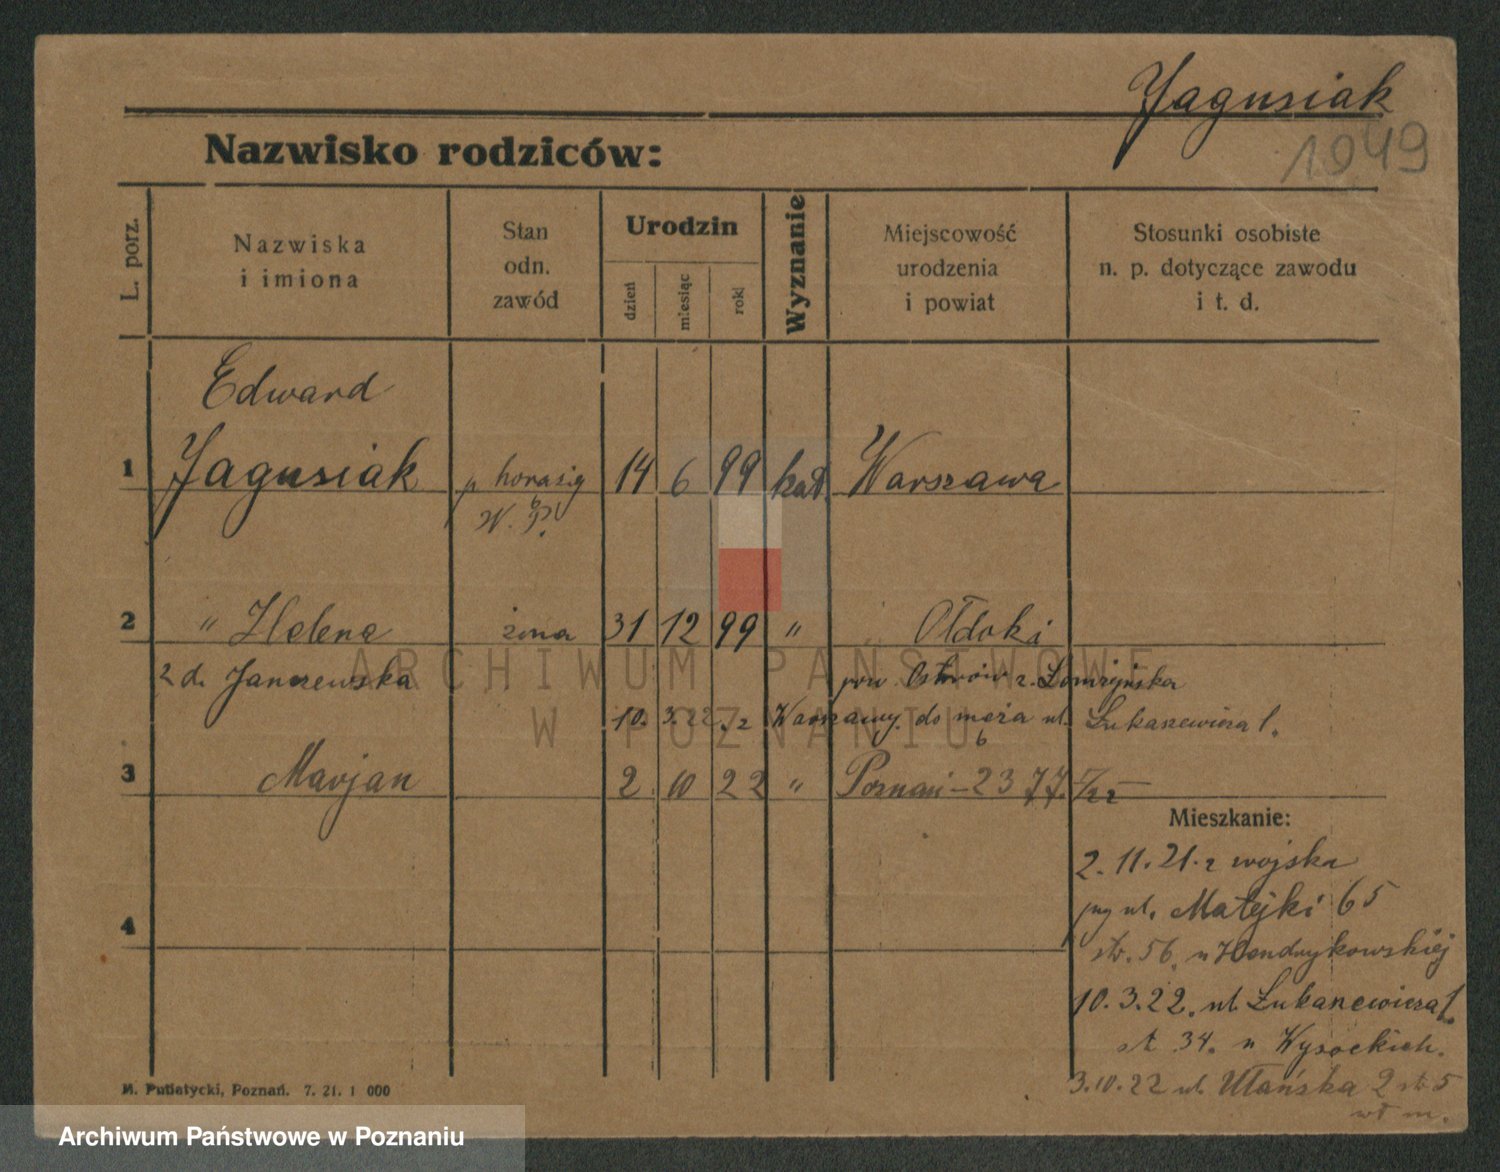 Jagusiak
1049
Nazwisko rodziców:
L. porz.
Nazwiska i imiona
Stan odn. zawód
Urodzin
dzień
miesiąc
rok
Wyznanie
Miejscowość urodzenia i powiat
Stosunki osobiste n. p. dotyczące zawodu i t. d.
Edward
1 Jagusiak p horąsig 14 6 99 kat. Warszawa
W. P.
2 " Helena żona 31 12 99 " Ołdaki
z d. Janczewska pow. Ostrów z. Łomżyńska
10. 3. 22. z Warszawy do męża ul. Łukaszewicza 1.
3 Marjan 2 10 22 " Poznań - 2377
Mieszkanie:
2. 11. 21. z wojska
ul. Matejki 65
str. 56. u Hendrykowskiej
4
10. 3. 22. ul. Łukaszewicza 1.
st 34. u Wysockich.
3.10.22 ul. Ułańska 2 st 5
wł m.
M. Putiatycki, Poznań. 7. 21. 1 000
ARCHIWUM PAŃSTWOWE
W POZNANIU
Archiwum Państwowe w Poznaniu